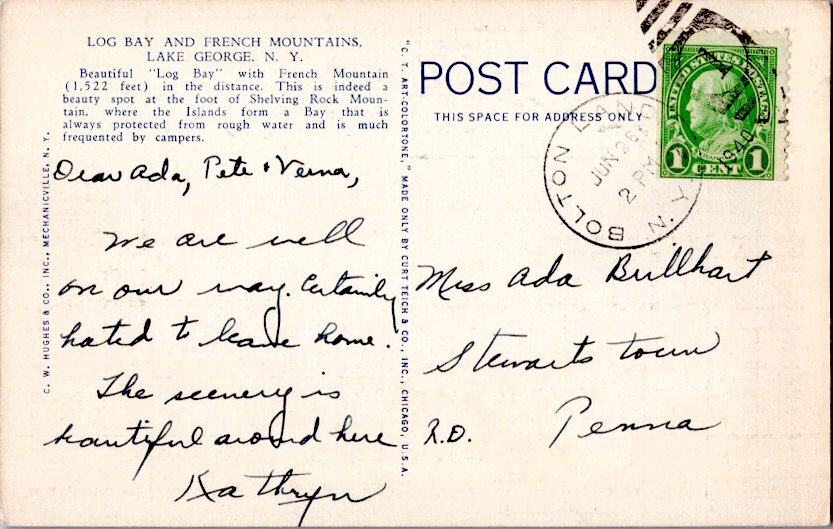 LOG BAY AND FRENCH MOUNTAINS,
LAKE GEORGE, N. Y.
Beautiful "Log Bay" with French Mountain
(1,522 feet) in the distance. This is indeed a
beauty spot at the foot of Shelving Rock Moun-
tain, where the Islands form a Bay that is
always protected from rough water and is much
frequented by campers.
Dear Ada, Pete + Verna,
We are well
on our way. Certainly
hated to leave home.
The scenery is
beautiful around here
Kathryn
C. W. HUGHES & CO., INC., MECHANICVILLE, N. Y.
"C. T. ART-COLORTONE," MADE ONLY BY CURT TEICH & CO., INC., CHICAGO, U.S.A.
POST CARD
THIS SPACE FOR ADDRESS ONLY
BOLTON LAND
JUN 26
2 PM
1940
N. Y.
UNITED STATES POSTAGE
1 CENT 1
Miss Ada Brillhart
Stewartstown
R.D. Penna